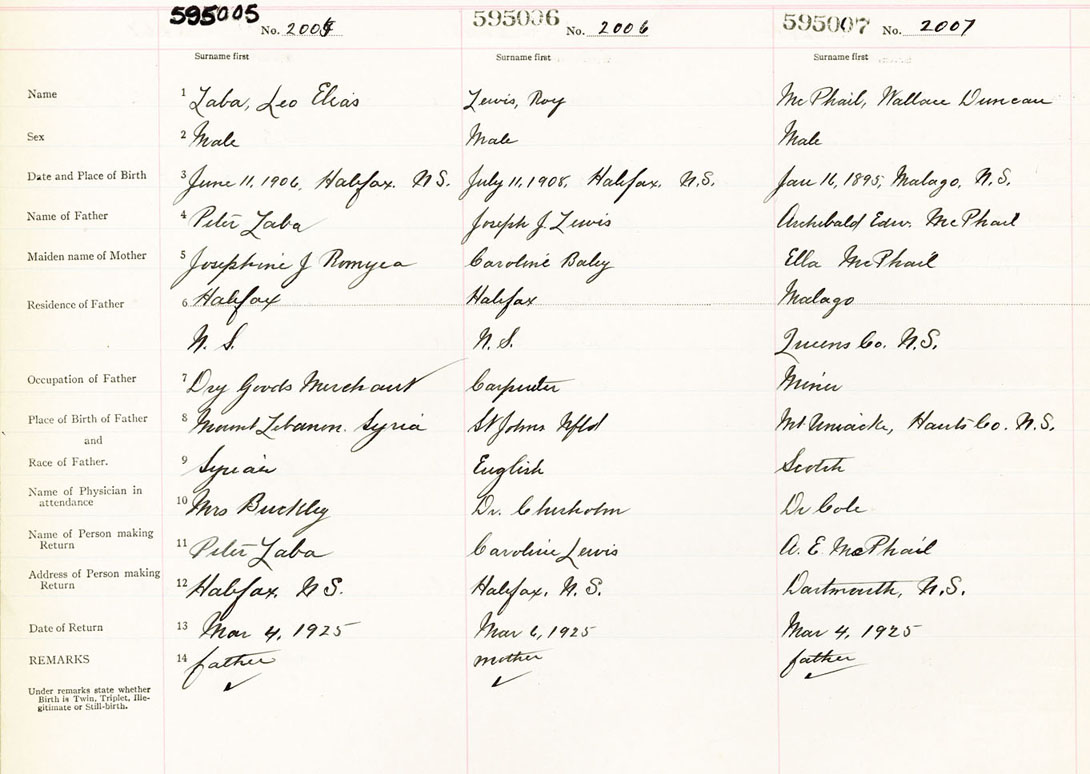 595005 No. 2005 595006 No. 2006 595007 No. 2007
Surname first Surname first Surname first
Name 1 Zaba, Leo Elias Lewis, Roy McPhail, Wallace Duncan
Sex 2 Male Male Male
Date and Place of Birth 3 June 11, 1906, Halifax. N.S. July 11, 1908, Halifax, N.S. Jan 16, 1895, Malago, N.S.
Name of Father 4 Peter Zaba Joseph J. Lewis Archibald Edw. McPhail
Maiden name of Mother 5 Josephine J Caroline Ella McPhail
Residence of Father 6 Halifax Halifax Malago
N. S. N. S. Queens Co. N.S.
Occupation of Father 7 Dry Goods Merchant Carpenter Miner
Place of Birth of Father 8 Mount Lebanon. Syria St Johns Nfld Mt Uniacke, Hants Co. N.S.
and
Race of Father. 9 Syrian English Scotch
Name of Physician in
attendance 10 Mrs Buckley Dr. Chisholm Dr Cole
Name of Person making
Return 11 Peter Zaba Caroline Lewis A. E. McPhail
Address of Person making
Return 12 Halifax, N S. Halifax, N. S. Dartmouth, N.S.
Date of Return 13 Mar 4, 1925 Mar 6, 1925 Mar 4, 1925
REMARKS 14 father mother father
Under remarks state whether
Birth is Twin, Triplet, Ille-
gitimate or Still-birth.